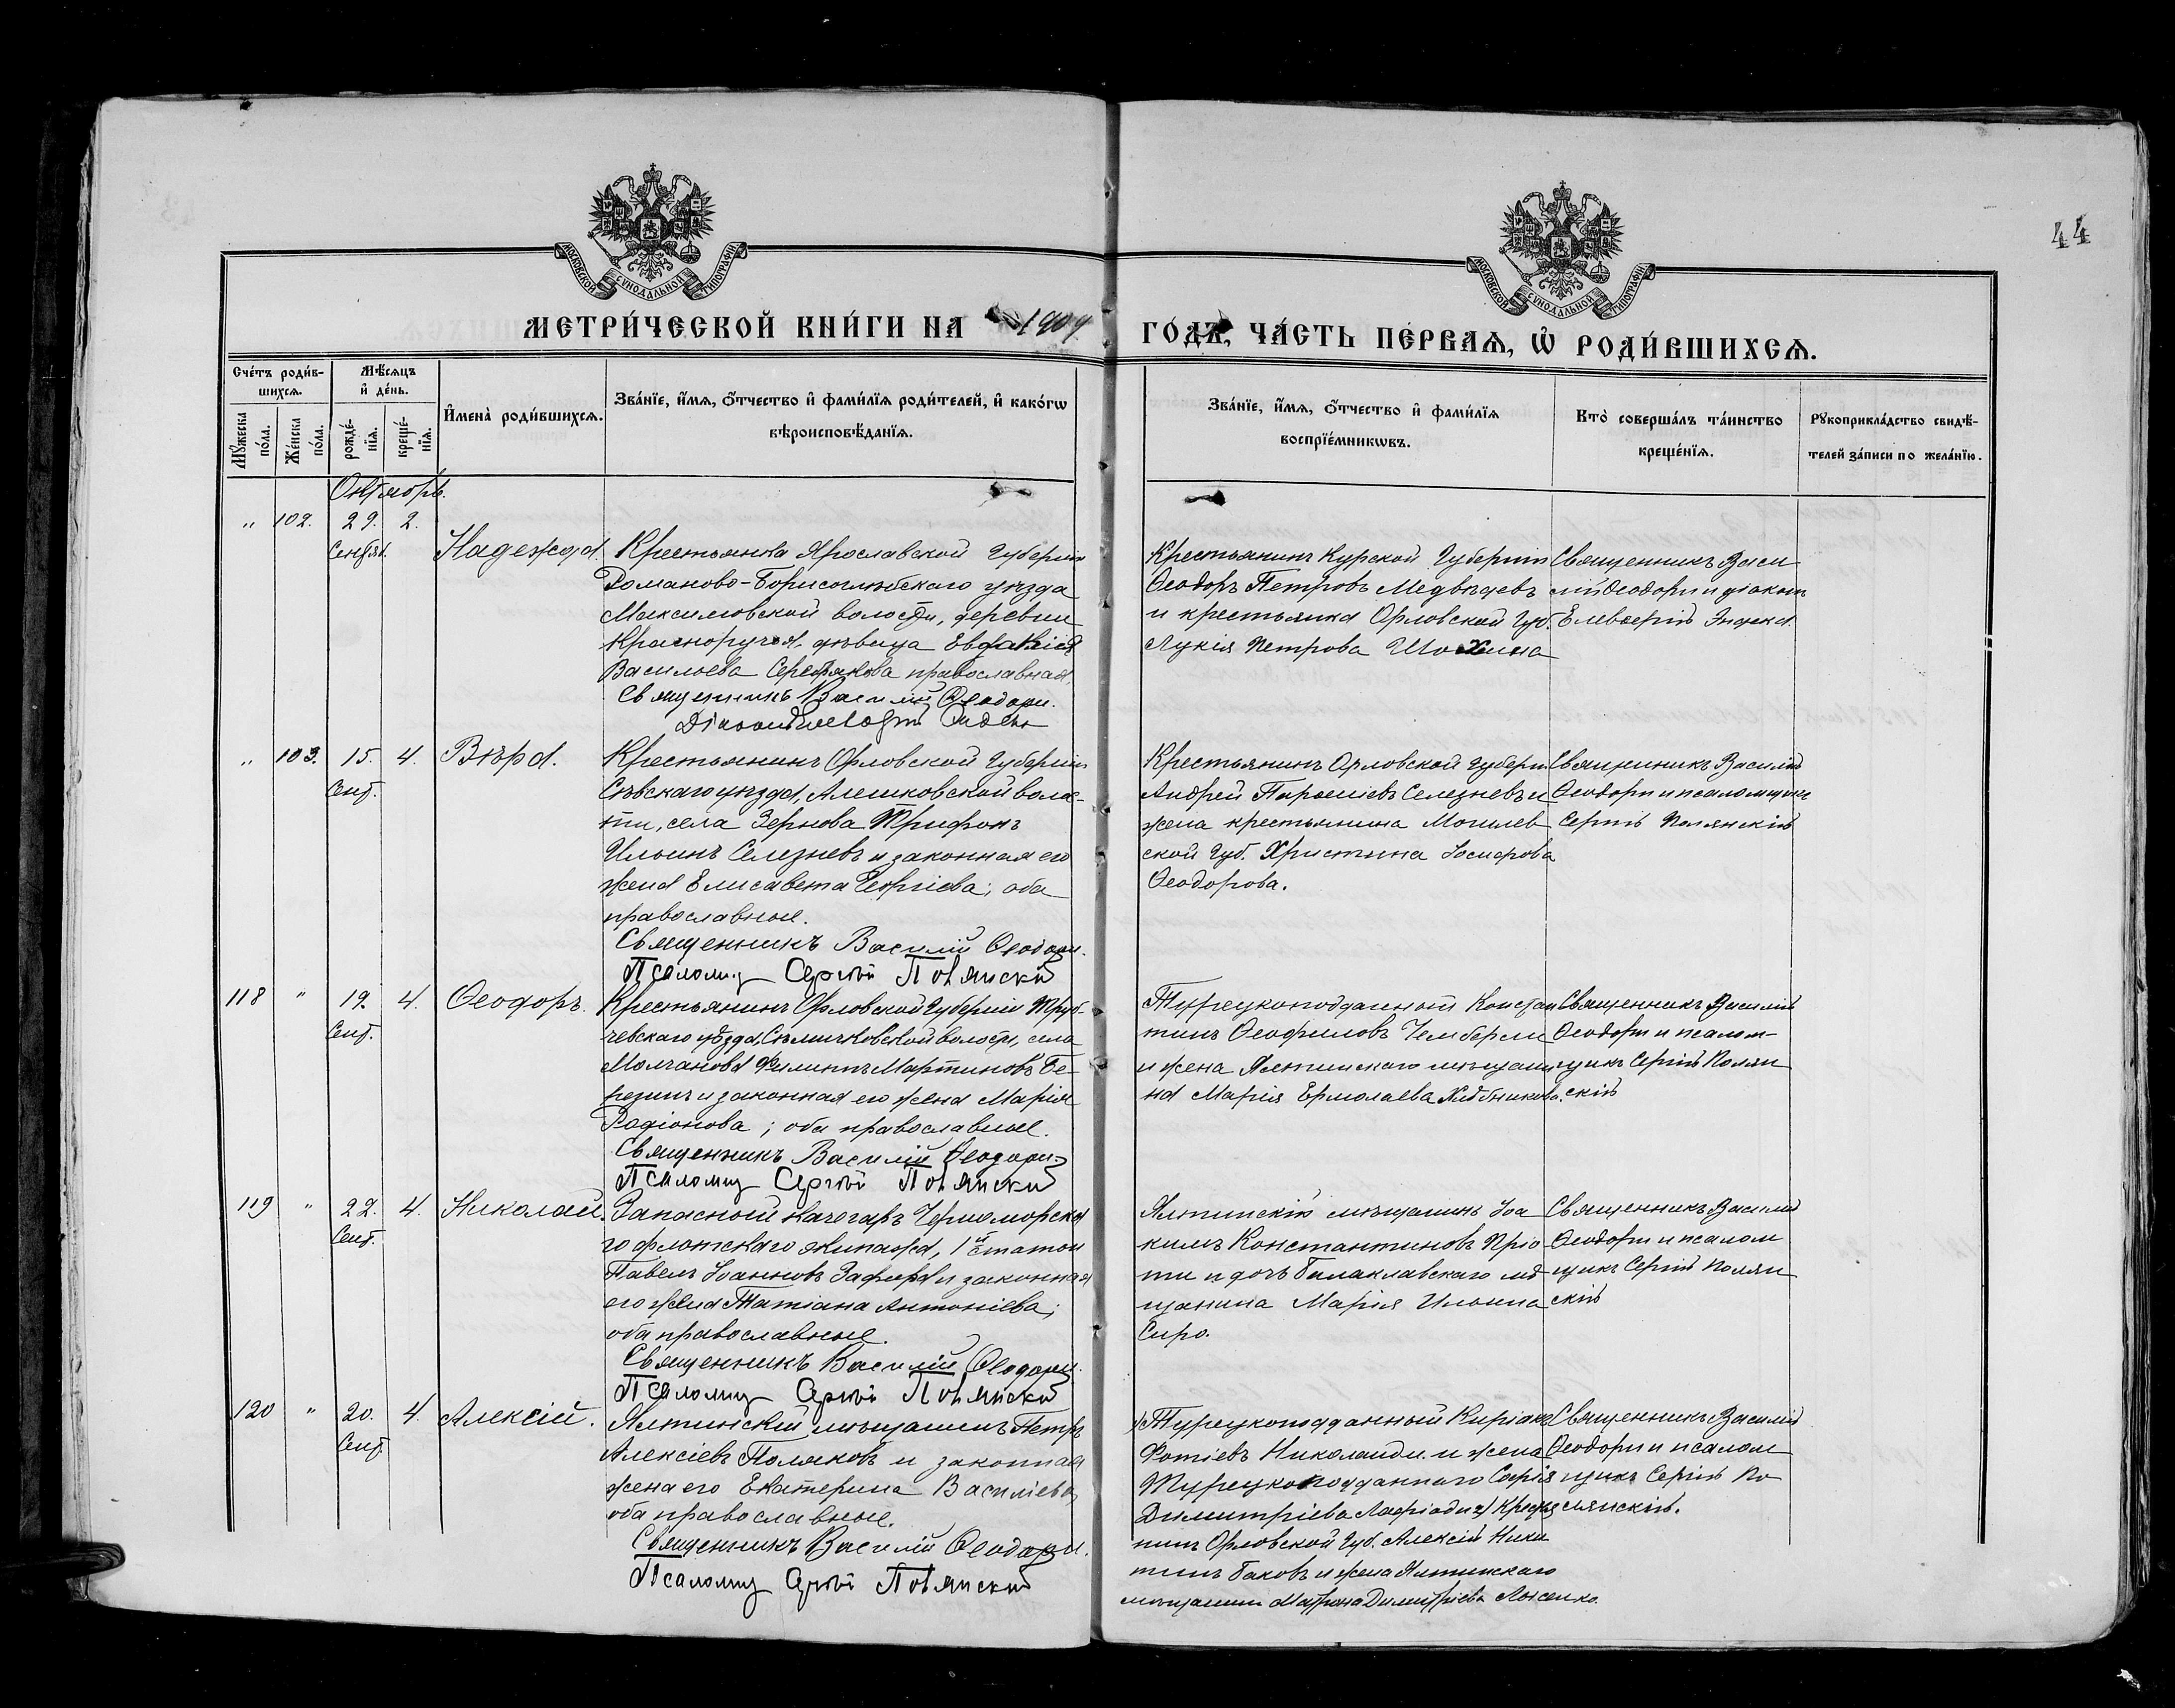 44
МОСКОВСКОЙ СѴНОДАЛЬНОЙ ТИПОГРАФІИ
МОСКОВСКОЙ СѴНОДАЛЬНОЙ ТИПОГРАФІИ
МЕТРИ́ЧЕСКОЙ КНИ́ГИ НА 1909 ГО́ДЪ, ЧА́СТЬ ПЕ́РВАѦ, Ѡ҆ РОДИ́ВШИХСѦ.
Сче́тъ роди́в-
шихсѧ.
Мꙋ́жеска по́ла.
Же́нска по́ла.
Мѣ́сѧцъ
и҆ де́нь.
рожде́-
нїѧ.
креще́-
нїѧ.
И҆мена̀ роди́вшихсѧ.
Зва́нїе, и҆́мѧ, ѻ҆́тчество и҆ фами́лїѧ роди́телей, и҆ како́гѡ
вѣроисповѣ́данїѧ.
Зва́нїе, и҆́мѧ, ѻ҆́тчество и҆ фами́лїѧ
воспрїе́мникѡвъ.
Кто̀ соверша́лъ та́инство
креще́нїѧ.
Рꙋкоприкла́дство свидѣ́-
телей за́писи по жела́нїю.
Октябрь.
" 102. 29. 2.
Сентяб.
Надежда.
Крестьянка Ярославской губерніи
Романово-Борисоглѣбскаго уѣзда
Максимовской волости, деревни
Красноручья, дѣвица Евдокія
Васильева Серебрякова православная.
Священникъ Василій Ѳеодори.
Крестьянинъ Курской Губерніи
Ѳеодоръ Петровъ Медвѣдевъ
и крестьянка Орловской Губ.
Лукія Петрова Шохина
Священникъ Васи
лій Ѳеодори и діаконъ
Елевѳерій Индека
" 103. 15. 4. Вѣра.
Сент.
Крестьянинъ Орловской Губерніи
Сѣвскаго уѣзда, Алешковской волос-
ти, села Зернова Трифонъ
Ильинъ Селезневъ и законная его
жена Елисавета Георгіева; оба
православные.
Священникъ Василій Ѳеодори.
Псаломщ Сергѣй Полянскій
Крестьянинъ Орловской губерн.
Андрей Селезневъ и
жена крестьянина Могилев
ской Губ. Христина Іосифова
Ѳеодорова.
Священникъ Василій
Ѳеодори и псаломщикъ
Сергій Полянскій
118 " 19. 4. Ѳеодоръ.
Сент.
Крестьянинъ Орловской Губерніи Труб-
чевскаго уѣзда, волости, села
Молчанова Филиппъ Мартиновъ Бе-
резинъ и законная его жена Марія
Родіонова; оба православные.
Священникъ Василій Ѳеодори.
Псаломщ Сергѣй Полянскій
Турецкоподданный Констан
тинъ Ѳеофиловъ Чемберли
и жена Ялтинскаго мѣщани
на Марія Ермолаева
Священникъ Василій
Ѳеодори и псалом-
щикъ Сергій Полян
скій
119 " 22. 4. Николай.
Сент.
Запасной кочегаръ Черноморска
го флотскаго экипажа, 1й статьи
Павелъ Іоанновъ и законная
его жена Татіана Антоніева;
оба православные.
Священникъ Василій Ѳеодори.
Псаломщ Сергѣй Полянскій
Ялтинскій мѣщанинъ Іоа
кимъ Константиновъ Пріо
ти и дочь Балаклавскаго мѣ
щанина Марія Ильина
Сиро.
Священникъ Василій
Ѳеодори и псалом
щикъ Сергій Полян
скій
120 " 20. 4. Алексій.
Сент.
Ялтинскій мѣщанинъ Петръ
Алексіевъ Поляковъ и законная
жена его Екатерина Василіева,
оба православные.
Священникъ Василій Ѳеодори.
Псаломщ Сергѣй Полянскій
1) Турецкоподданный Киріакъ
Фотіевъ Николаиди и жена
Турецкоподданнаго Софія
Димитріева Лафіади 2) Крестья
нинъ Орловской Губ. Алексій Ники
тинъ Баковъ и жена Ялтинскаго
мѣщанина Матрона Димитріева Лысенко.
Священникъ Василій
Ѳеодори и псалом
щикъ Сергій По
лянскій.